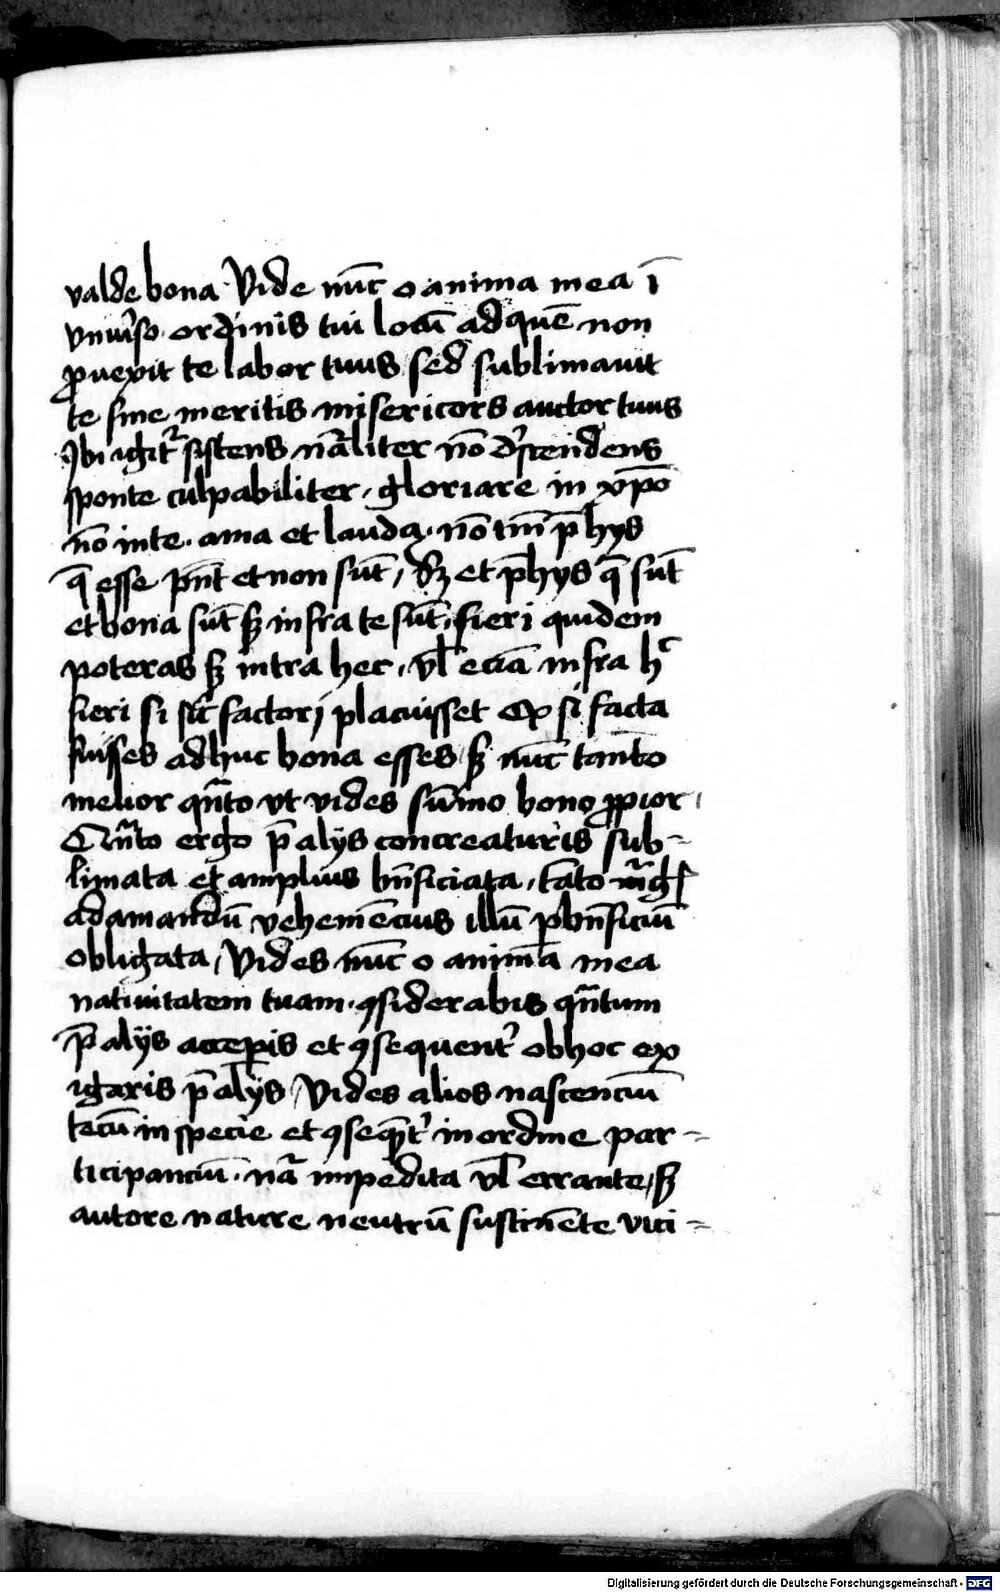 valde bona Vide nūc o anima mea ī
vniu̓so ordinis tui locū ad quē non
ꝓuexit te labor tuus sed sublimauit
te sine meritis misericors auctor tuus
Ibi igit̓ sistens nāliter nō descendens
sponte culpabiliter, gloriare in xp̄o
nō in te. ama et lauda. nō tm̄ p̄ hys
q̄ esse pn̄t et non sūt, sꝫ et p̄ hys q̄ sūt
et bona sūt sꝫ infra te sūt, fieri quidem
poteras sꝫ intra hec, vl̄ eciā infra hͨ
fieri si sic factori placuisset Et si facta
fuisses adhuc bona esses sꝫ nūc tanto
melior qn̄to vt vides sūmo bono ꝓpior
Qn̄to ergo p̄ alys concreaturis sub-
limata et amplius bn̄ficiata, tāto
adamandū vehemēcius illū ꝑ bn̄ficiū
obligata, Vides nūc o anima mea
natiuitatem tuam. ꝯsiderabis qn̄tum
p̄ alys acceperis et ꝯsequent̓ ob hoc ex
igaris p̄ alys Vides alios nascenciū
tecū in specie et ꝯseqn̄t̓ in ordine par-
ticipanciū. nā impedita vl̄ errante, sꝫ
autore nature neutrū sustinēte vici-
Digitalisierung gefördert durch die Deutsche Forschungsgemeinschaft - DFG